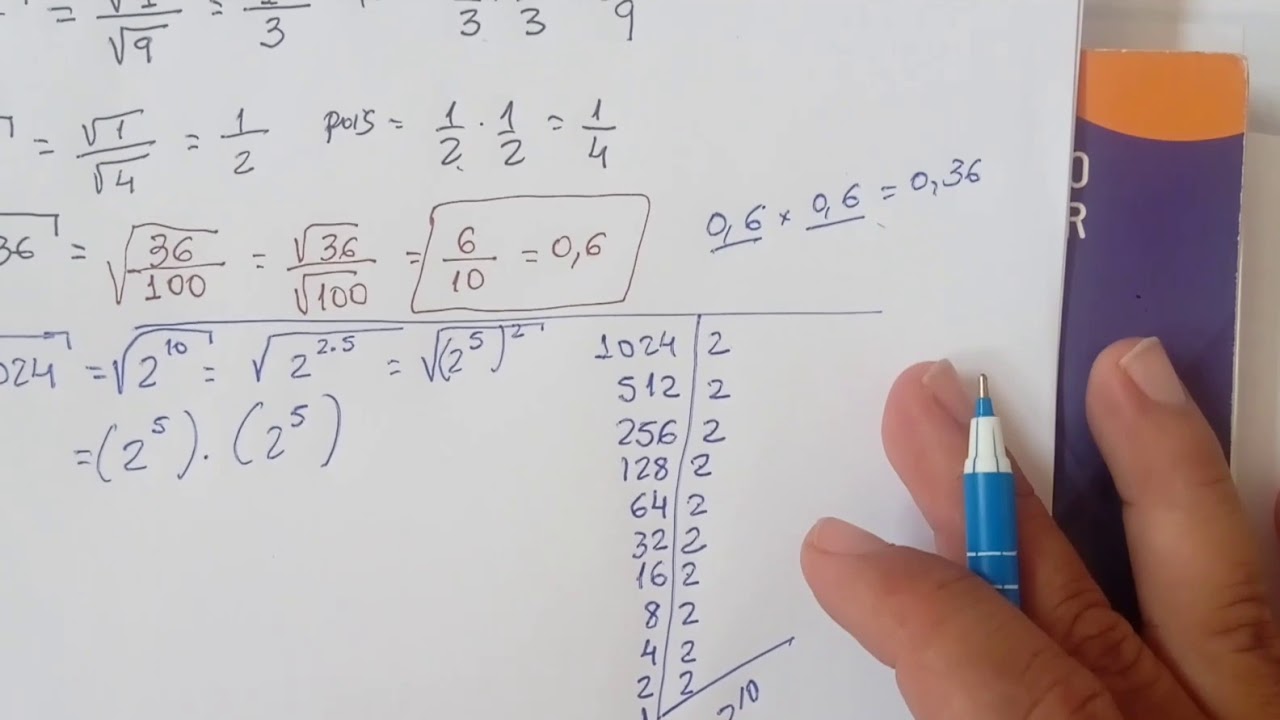 = √1/√9 = 1/3
1/3 · 1/3 = 1/9
= √1/√4 = 1/2 pois = 1/2 · 1/2 = 1/4
36 = √(36/100) = √36/√100 = 6/10 = 0,6
0,6 × 0,6 = 0,36
024 = √2^10 = √2^2·5 = √(2^5)^2
= (2^5) · (2^5)
1024 | 2
512 | 2
256 | 2
128 | 2
64 | 2
32 | 2
16 | 2
8 | 2
4 | 2
2 | 2
1 2^10
O
R